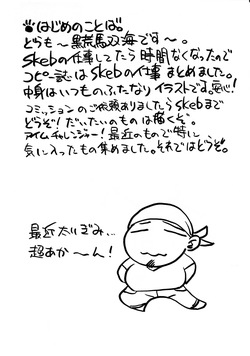 はじめのことば。
どうも〜黒荒馬双海です〜。
skebの仕事してたら時間なくなったので
コピー誌はskebの仕事まとめました。
中身はいつものふたなりイラストです。安心!
コミッションのご依頼ありましたらskebまで
どうぞ!だいたいのものは描くぞ。
アイムチャレンジャー!最近のもので特に
気に入ったもの集めました。それではどうぞ。
最近太いぞみ…
超あか〜ん!